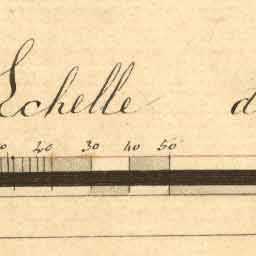 Echelle d
20 30 40 50